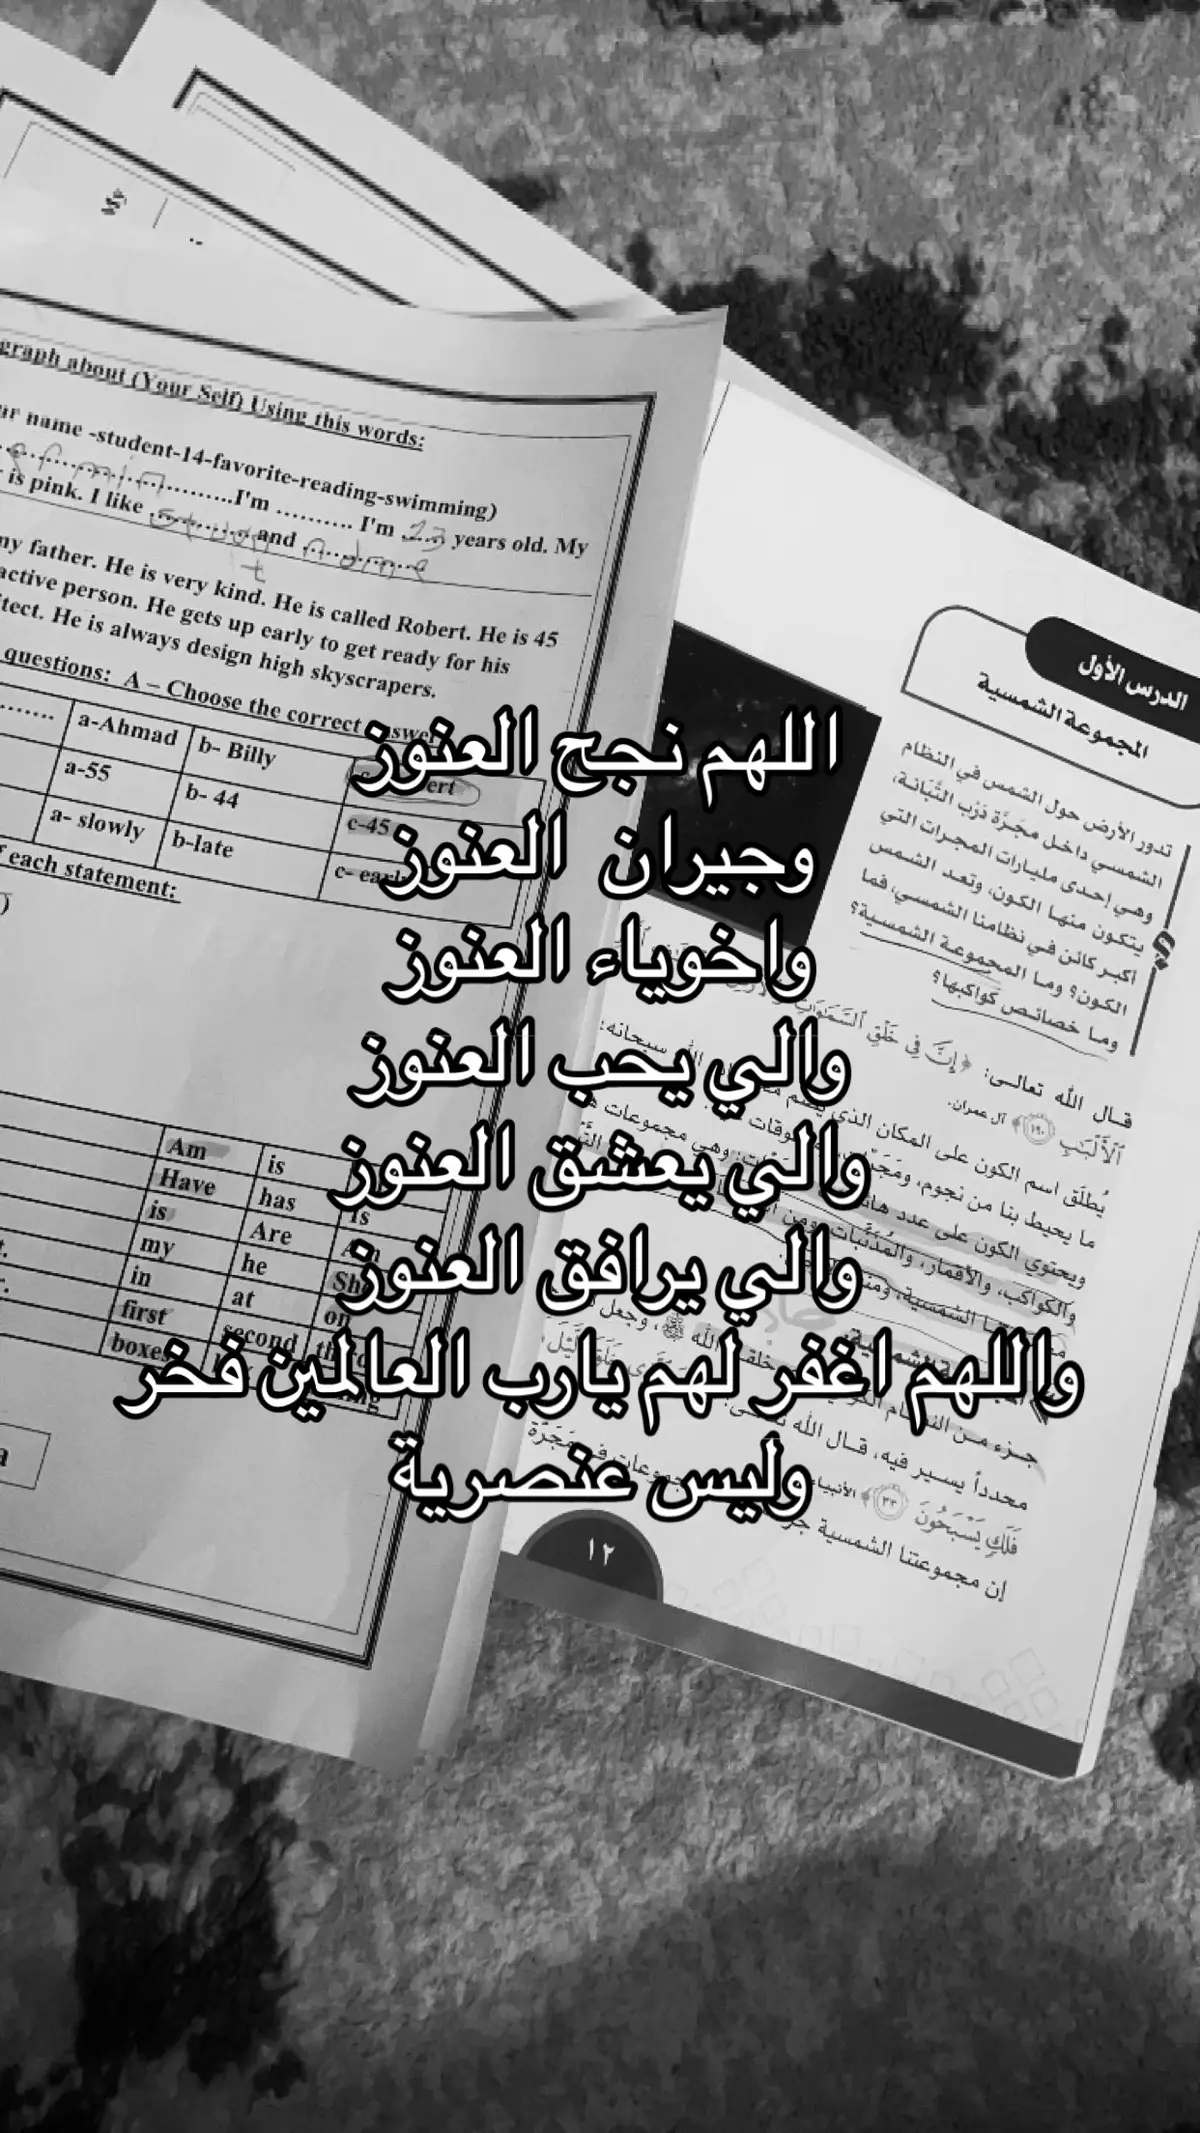 graph about (Your Self) Using this words:
ur name -student-14-favorite-reading-swimming)
I'm .......... I'm ..13.. years old. My
is pink. I like ............ and ............
my father. He is very kind. He is called Robert. He is 45
active person. He gets up early to get ready for his
tect. He is always design high skyscrapers.
questions: A – Choose the correct
a-Ahmad b- Billy
a-55 b- 44 c-45
a- slowly b-late c-
each statement:
Am is
Have has Is
is Are
my he
in at on
first second
boxes
الدرس الأول
المجموعة الشمسية
تدور الأرض حول الشمس في النظام
الشمسي داخل مجرَّة دَرْب التَّبَّانة،
وهي إحدى مليارات المجرات التي
يتكون منها الكون، وتعد الشمس
أكبر كائن في نظامنا الشمسي، فما
الكون؟ وما المجموعة الشمسية؟
وما خصائص كواكبها؟
قال الله تعالى: ﴿إِنَّ فِي خَلْقِ ٱلسَّمَٰوَٰتِ
ٱلْأَلْبَٰبِ ﴿١٩٠﴾ آل عمران.
يُطلَق اسم الكون على المكان الذي
سبحانه:
ما يحيط بنا من نجوم،
ويحتوي الكون على عدد
وهي مجموعات
والكواكب، والأقمار، والمُذَنَّبات
الشمسية،
الله
، وجعل
جزء من
محدداً يسير فيه، قال الله
فَلَكٍ يَسْبَحُونَ ﴿٣٣﴾ الأنبياء
إن مجموعتنا الشمسية
١٢
اللهم نجح العنوز
وجيران العنوز
واخوياء العنوز
والي يحب العنوز
والي يعشق العنوز
والي يرافق العنوز
واللهم اغفر لهم يارب العالمين فخر
وليس عنصرية